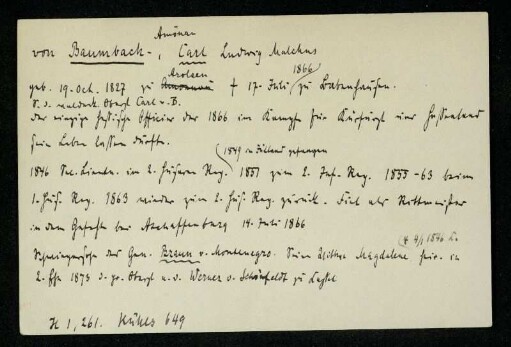 Amönau
von Baumbach-, Carl Ludwig Malchus
Arolsen 1866
geb. 19. Oct. 1827 zu † 17. Juli zu Babenhausen.
S. d. waldeck. Oberst Carl v. B.
der einzige hessische Officier der 1866 im Kampfe für Kurfürst und Hessenland
sein Leben lassen durfte.
1849 in Jütland gefangen
1846 Sec. Lieuten. im 2. Husaren Reg. 1851 zum 2. Inf. Reg. 1855-63 beim
1. Hus. Reg. 1863 wieder zum 2. Hus. Reg. zurück. Fiel als Rittmeister
in dem Gefecht bei Aschaffenburg 14. Juli 1866
Schwiegersohn des Gen. Braun v. Montenegro. Seine Wittwe Magdalene heir. in
2. Ehe 1873 d. pr. Oberst a. D. Werner v. Schönfeldt zu
H 1, 261. 649